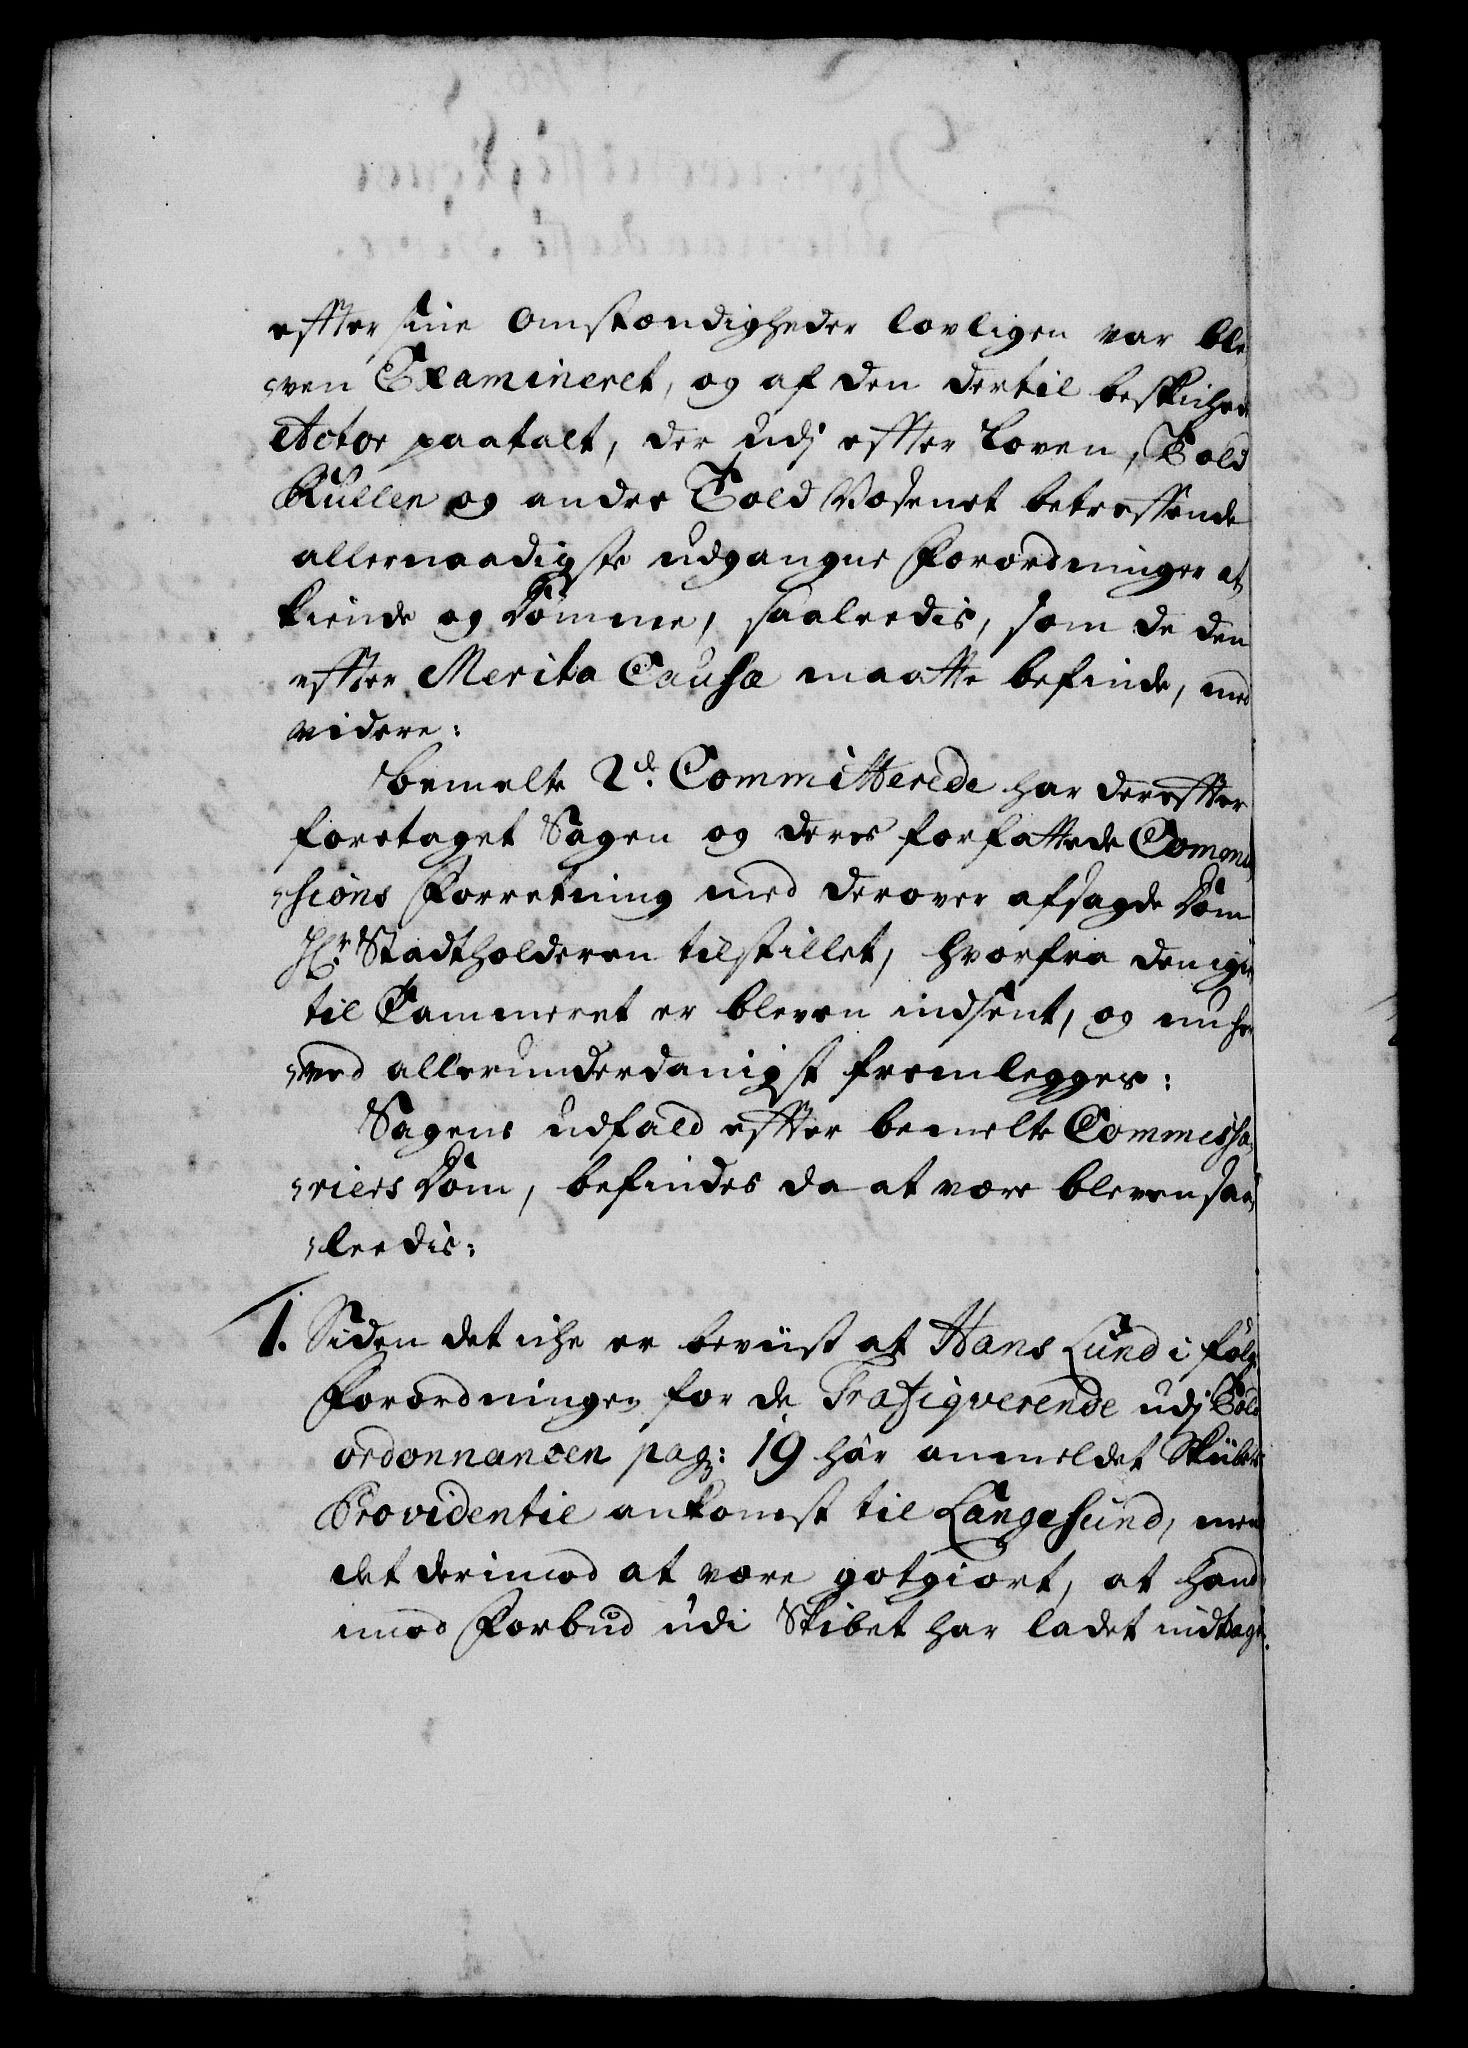 effter sine omstændigheder lovligen var ble,
,,ven Examineret, og af den dertil beskichede
Actor paatalt, der udj effter Loven, Told
Rullen og andre Told Væsenet betreffende
allernaadigste udgangne Forordninger at
kiende og Dømme, saaleedis, som de den
effter Merita Causæ maatte befinde, med
videre:
Bemelte 2de. Committerede har dereffter
foretaget Sagen og deres forfattede Commis,
,,sions Forretning med derover afsagde Dom
Hr. Stadtholderen tilstillet, hvorfra den igien
til Cammeret er bleven indsent, og nu her
,,ved allerunderdanigst fremlegges:
Sagens udfald effter bemelte Commissa,
,,riers Dom, befindes da at være bleven saa,
,,leedis:
1. Siden det iche er beviist at Hans Lund i følge
Forordningen for de Trafiqverende udj Told
ordonnancen pag: 19 har anmeldet Skibets
Providentie ankomst til Langesund, men
det derimod at være gotgiort, at hand
imod Forbud udi Skibet har ladet indtage